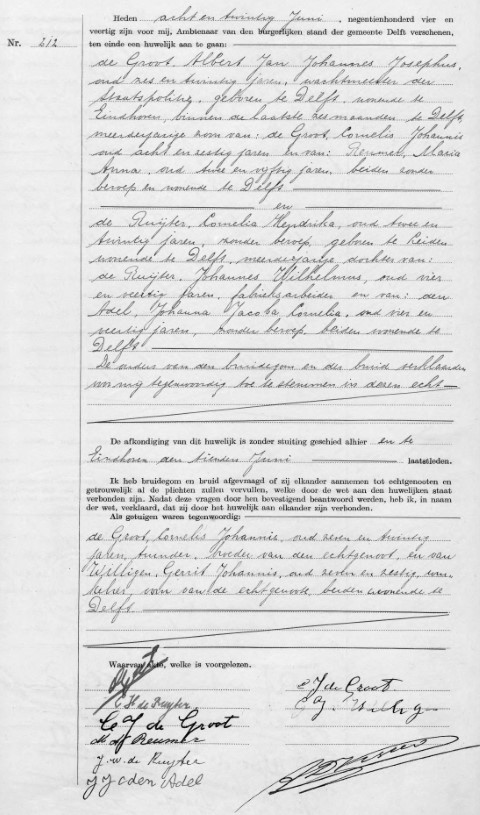 Nr. 212
Heden acht en twintig Juni, negentienhonderd vier en
veertig zijn voor mij, Ambtenaar van den burgerlijken stand der gemeente Delft verschenen,
ten einde een huwelijk aan te gaan:
de Groot, Albert Jan Johannes Josephus,
oud zes en twintig jaren, wachtmeester der
Staatspolitie, geboren te Delft, wonende te
Eindhoven, binnen de laatste zes maanden te Delft,
meerderjarige zoon van: de Groot, Cornelis Johannis
oud acht en zestig jaren en van: Reumer, Maria
Anna, oud twee en vijftig jaren, beiden zonder
beroep en wonende te Delft
en
de Ruijter, Cornelia Hendrika, oud twee en
twintig jaren, zonder beroep, geboren te Leiden
wonende te Delft, meerderjarige dochter van:
de Ruijter, Johannes Wilhelmus, oud vier
en veertig jaren, fabrieksarbeider en van: den
Adel, Johanna Jacoba Cornelia, oud vier en
veertig jaren, zonder beroep, beiden wonende te
Delft
De ouders van den bruidegom en der bruid verklaarden
voor mij tegenwoordig toe te stemmen in dezen echt
De afkondiging van dit huwelijk is zonder stuiting geschied alhier en te
Eindhoven den tienden Juni laatstleden.
Ik heb bruidegom en bruid afgevraagd of zij elkander aannemen tot echtgenooten en
getrouwelijk al de plichten zullen vervullen, welke door de wet aan den huwelijken staat
verbonden zijn. Nadat deze vragen door hen bevestigend beantwoord werden, heb ik, in naam
der wet, verklaard, dat zij door het huwelijk aan elkander zijn verbonden.
Als getuigen waren tegenwoordig:
de Groot, Cornelis Johannis, oud zeven en twintig
jaren, tuinder, broeder van den echtgenoot, en van
Willigen, Gerrit Johannis, oud zeven en zestig,
oom van de echtgenoote, beiden wonende te
Delft
Waarvan akte, welke is voorgelezen.
C H de Ruyter
C J de Groot
C J de Groot
Reumer
J. W. de Ruyter
J J C den Adel